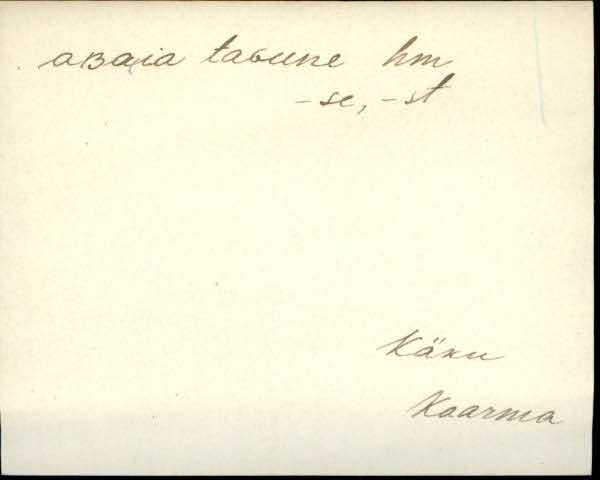 aʙaia taɢune hm
-se, -st
Käku
Kaarma